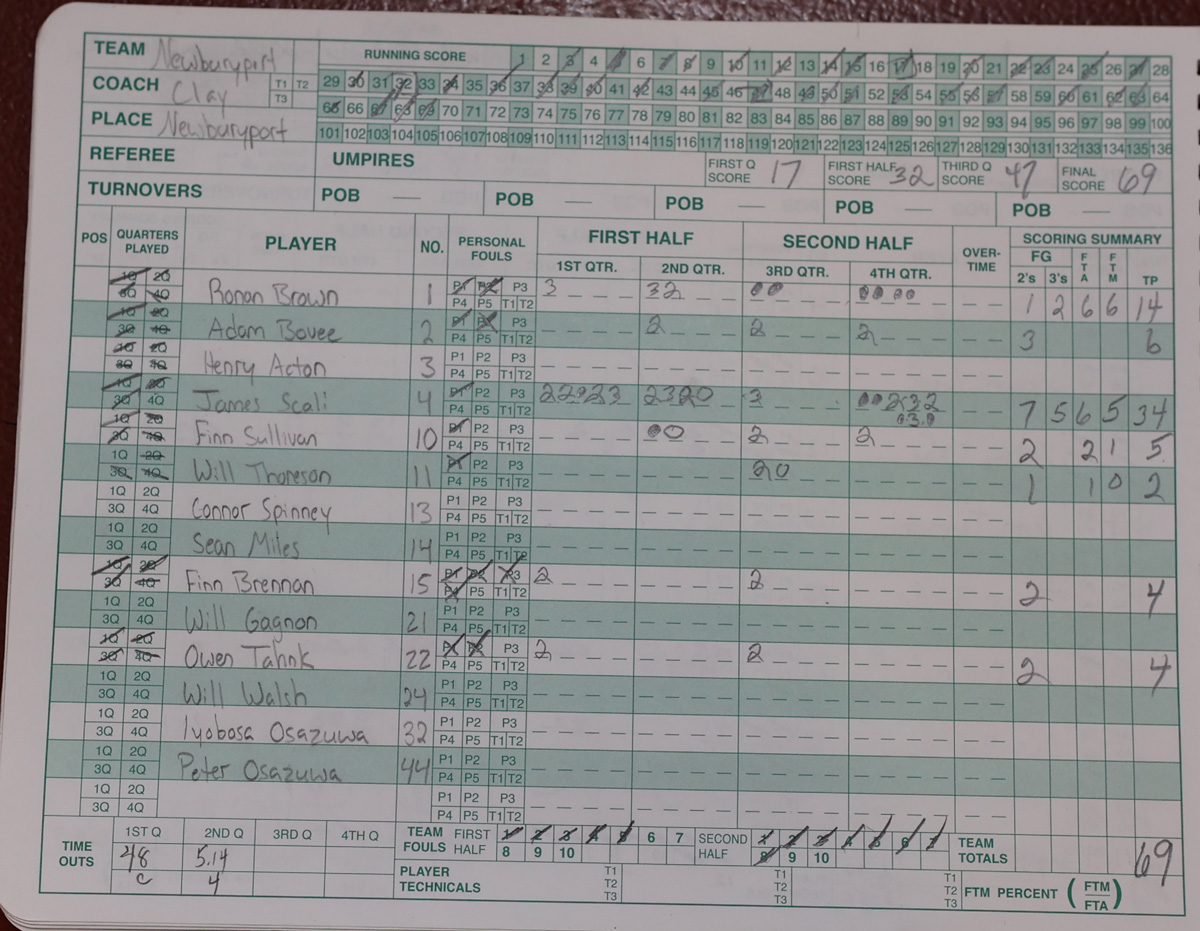 TEAM Newburyport RUNNING SCORE 1 2 3 4 5 6 7 8 9 10 11 12 13 14 15 16 17 18 19 20 21 22 23 24 25 26 27 28
COACH Clay T1 T2 T3 29 30 31 32 33 34 35 36 37 38 39 40 41 42 43 44 45 46 47 48 49 50 51 52 53 54 55 56 57 58 59 60 61 62 63 64
65 66 67 68 69 70 71 72 73 74 75 76 77 78 79 80 81 82 83 84 85 86 87 88 89 90 91 92 93 94 95 96 97 98 99 100
PLACE Newburyport 101 102 103 104 105 106 107 108 109 110 111 112 113 114 115 116 117 118 119 120 121 122 123 124 125 126 127 128 129 130 131 132 133 134 135 136
REFEREE UMPIRES FIRST Q SCORE 17 FIRST HALF SCORE 32 THIRD Q SCORE 47 FINAL SCORE 69
TURNOVERS POB — POB — POB — POB — POB —
POS QUARTERS PLAYED PLAYER NO. PERSONAL FOULS FIRST HALF SECOND HALF OVER-TIME SCORING SUMMARY
1ST QTR. 2ND QTR. 3RD QTR. 4TH QTR. FG 2's 3's FTA FTM TP
1Q 2Q 3Q 4Q Ronan Brown 1 P1 P2 P3 P4 P5 T1 T2 3 32 1 2 6 6 14
1Q 2Q 3Q 4Q Adam Bovee 2 P1 P2 P3 P4 P5 T1 T2 2 2 2 3 6
1Q 2Q 3Q 4Q Henry Acton 3 P1 P2 P3 P4 P5 T1 T2
1Q 2Q 3Q 4Q James Scali 4 P1 P2 P3 P4 P5 T1 T2 2320 3 232 7 5 6 5 34
1Q 2Q 3Q 4Q Finn Sullivan 10 P1 P2 P3 P4 P5 T1 T2 2 2 2 2 1 5
1Q 2Q 3Q 4Q Will Thoreson 11 P1 P2 P3 P4 P5 T1 T2 20 1 1 0 2
1Q 2Q 3Q 4Q Connor Spinney 13 P1 P2 P3 P4 P5 T1 T2
1Q 2Q 3Q 4Q Sean Miles 14 P1 P2 P3 P4 P5 T1 T2
1Q 2Q 3Q 4Q Finn Brennan 15 P1 P2 P3 P4 P5 T1 T2 2 2 2 4
1Q 2Q 3Q 4Q Will Gagnon 21 P1 P2 P3 P4 P5 T1 T2
1Q 2Q 3Q 4Q Owen Tahnk 22 P1 P2 P3 P4 P5 T1 T2 2 2 2 4
1Q 2Q 3Q 4Q Will Walsh 24 P1 P2 P3 P4 P5 T1 T2
1Q 2Q 3Q 4Q Iyobosa Osazuwa 32 P1 P2 P3 P4 P5 T1 T2
1Q 2Q 3Q 4Q Peter Osazuwa 44 P1 P2 P3 P4 P5 T1 T2
1Q 2Q 3Q 4Q P1 P2 P3 P4 P5 T1 T2
TIME OUTS 1ST Q 2ND Q 3RD Q 4TH Q TEAM FOULS FIRST HALF 1 2 3 4 5 6 7 8 9 10 SECOND HALF 1 2 3 4 5 6 7 8 9 10 TEAM TOTALS 69
48 5.14
C 4
PLAYER TECHNICALS T1 T2 T3 T1 T2 T3 T1 T2 T3 FTM PERCENT (FTM FTA)